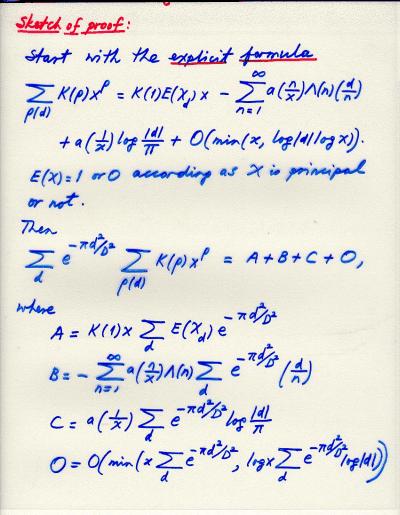 Sketch of proof:
Start with the explicit formula
∑_{ρ(d)} K(ρ)x^ρ = K(1)E(χ_d)x − ∑_{n=1}^{∞} a(n/x)Λ(n)(d/n)
+ a(1/x) log |d|/π + O(min(x, log|d| log x)).
E(χ)=1 or 0 according as χ is principal
or not.
Then
∑_d e^{−πd²/D²} ∑_{ρ(d)} K(ρ)x^ρ = A+B+C+O,
where
A = K(1)x ∑_d E(χ_d) e^{−πd²/D²}
B = − ∑_{n=1}^{∞} a(n/x)Λ(n) ∑_d e^{−πd²/D²} (d/n)
C = a(1/x) ∑_d e^{−πd²/D²} log |d|/π
O = O(min(x ∑_d e^{−πd²/D²}, log x ∑_d e^{−πd²/D²} log|d|))